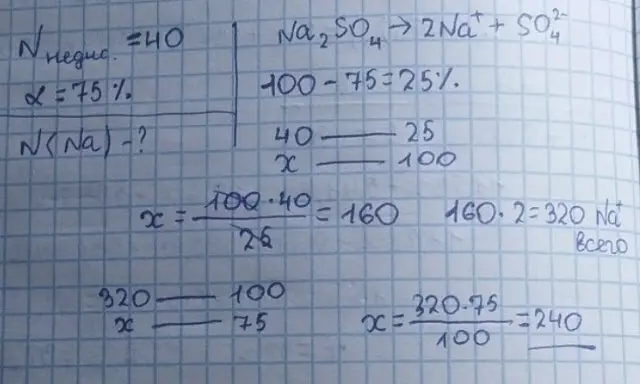 Nнедис. = 40
α = 75%
N(Na) - ?
Na₂SO₄ → 2Na⁺ + SO₄²⁻
100 - 75 = 25%.
40 — 25
x — 100
x = 100·40 / 25 = 160 160·2 = 320 Na⁺
всего
320 — 100
x — 75
x = 320·75 / 100 = 240